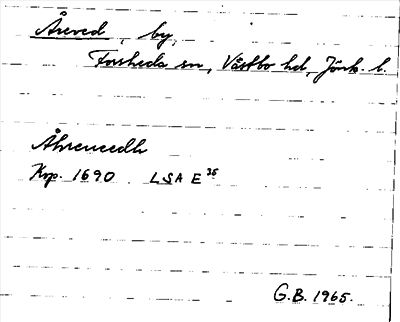 Åreved, by,
Forsheda sn, Västbo hd, Jönk. l.
Åhreweedh
Kop. 1690 LSA E 36
G.B. 1965.